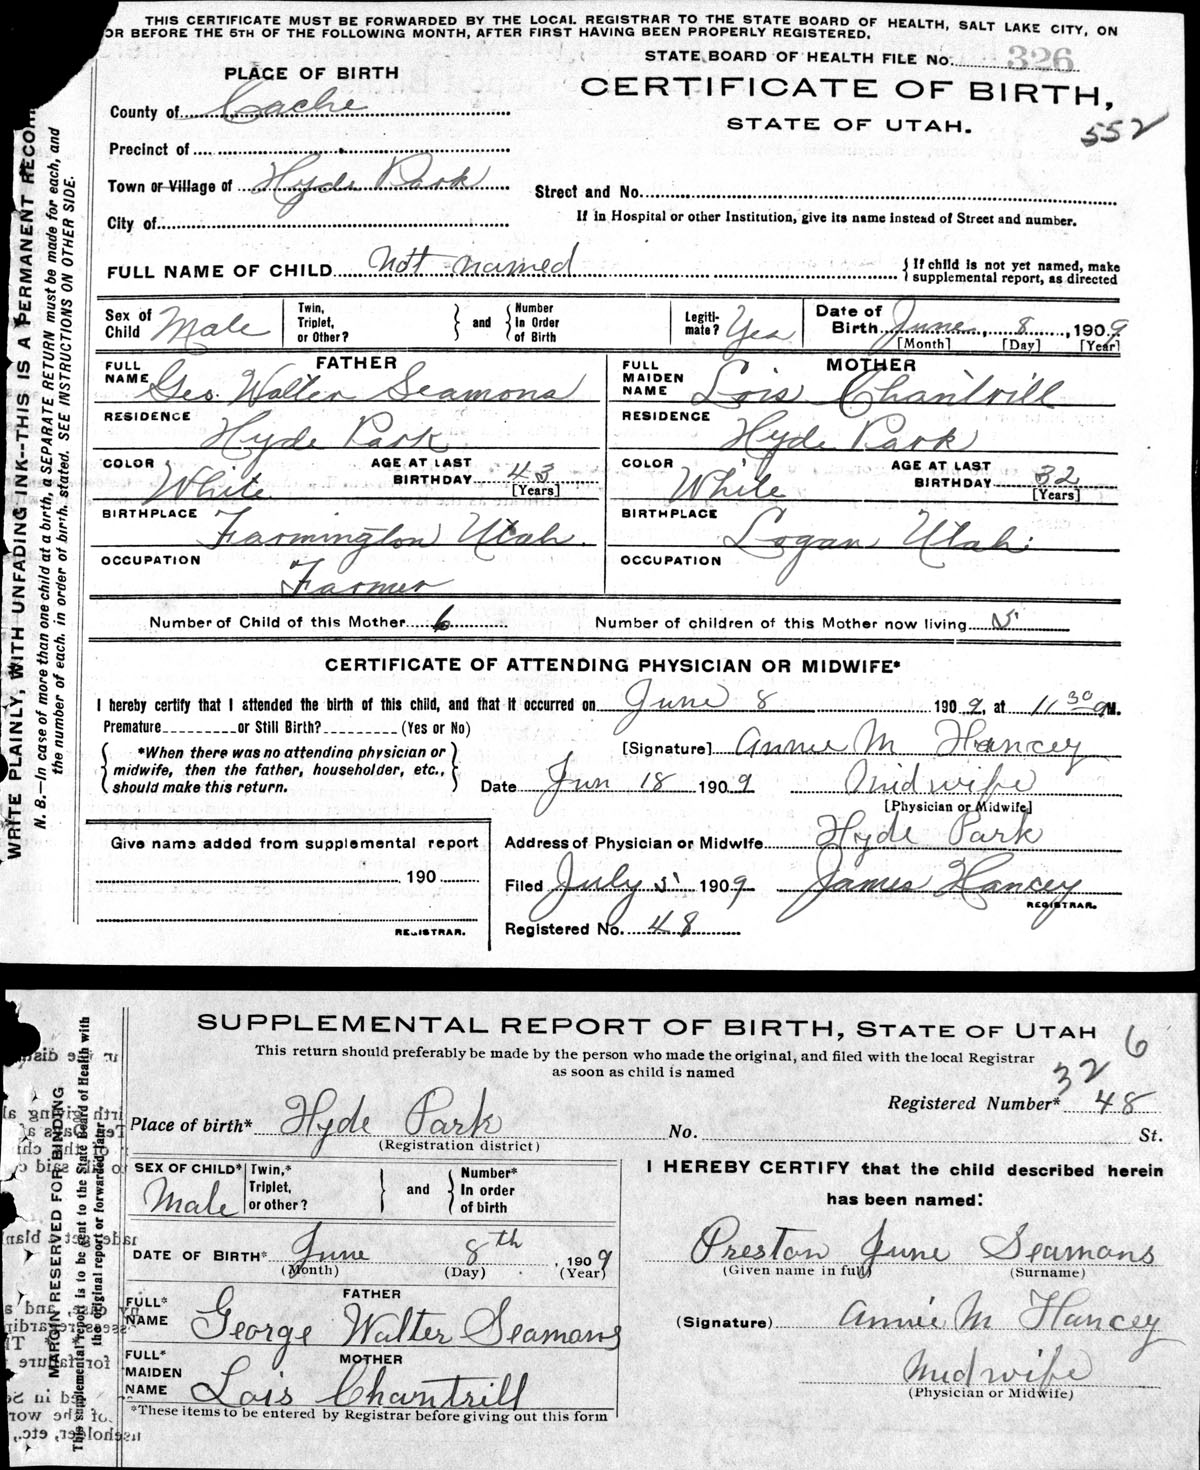 THIS CERTIFICATE MUST BE FORWARDED BY THE LOCAL REGISTRAR TO THE STATE BOARD OF HEALTH, SALT LAKE CITY, ON
OR BEFORE THE 5TH OF THE FOLLOWING MONTH, AFTER FIRST HAVING BEEN PROPERLY REGISTERED.
STATE BOARD OF HEALTH FILE No. 326
PLACE OF BIRTH
CERTIFICATE OF BIRTH,
County of Cache
STATE OF UTAH.
552
Precinct of
Town or Village of Hyde Park
Street and No.
City of
If in Hospital or other Institution, give its name instead of Street and number.
FULL NAME OF CHILD Not named
{If child is not yet named, make
supplemental report, as directed
Sex of Child Male
Twin, Triplet, or Other? } and { Number In Order of Birth
Legiti-mate? Yes
Date of Birth June, 8, 1909
[Month] [Day] [Year]
FATHER
FULL NAME Geo. Walter Seamons
MOTHER
FULL MAIDEN NAME Lois Chantrill
RESIDENCE Hyde Park
RESIDENCE Hyde Park
COLOR White AGE AT LAST BIRTHDAY 43 [Years]
COLOR White AGE AT LAST BIRTHDAY 32 [Years]
BIRTHPLACE Farmington Utah.
BIRTHPLACE Logan Utah.
OCCUPATION Farmer
OCCUPATION
Number of Child of this Mother 6 Number of children of this Mother now living 5
CERTIFICATE OF ATTENDING PHYSICIAN OR MIDWIFE*
I hereby certify that I attended the birth of this child, and that it occurred on June 8 1909, at 11 30 a M.
Premature or Still Birth? (Yes or No)
{ *When there was no attending physician or midwife, then the father, householder, etc., should make this return. }
[Signature] Annie M Hancey
Date Jun 18 1909 Midwife
[Physician or Midwife]
Give name added from supplemental report
190
REGISTRAR.
Address of Physician or Midwife Hyde Park
Filed July 5 1909 James Hancey
REGISTRAR.
Registered No. 48
WRITE PLAINLY, WITH UNFADING INK--THIS IS A PERMANENT RECOR
N. B.—In case of more than one child at a birth, a SEPARATE RETURN must be made for each, and
the number of each, in order of birth, stated. SEE INSTRUCTIONS ON OTHER SIDE.
SUPPLEMENTAL REPORT OF BIRTH, STATE OF UTAH
This return should preferably be made by the person who made the original, and filed with the local Registrar
as soon as child is named
326
Registered Number* 48
Place of birth* Hyde Park No. St.
(Registration district)
SEX OF CHILD* Male
Twin,* Triplet, or other? } and { Number* In order of birth
I HEREBY CERTIFY that the child described herein
has been named:
DATE OF BIRTH* June 8th, 1909
(Month) (Day) (Year)
Preston June Seamons
(Given name in full) (Surname)
FATHER
FULL* NAME George Walter Seamans
(Signature) Annie M Hancey
MOTHER
FULL* MAIDEN NAME Lois Chantrill
Midwife
(Physician or Midwife)
*These items to be entered by Registrar before giving out this form
MARGIN RESERVED FOR BINDING
This supplemental report is to be sent to the State Board of Health with
the original report or forwarded later